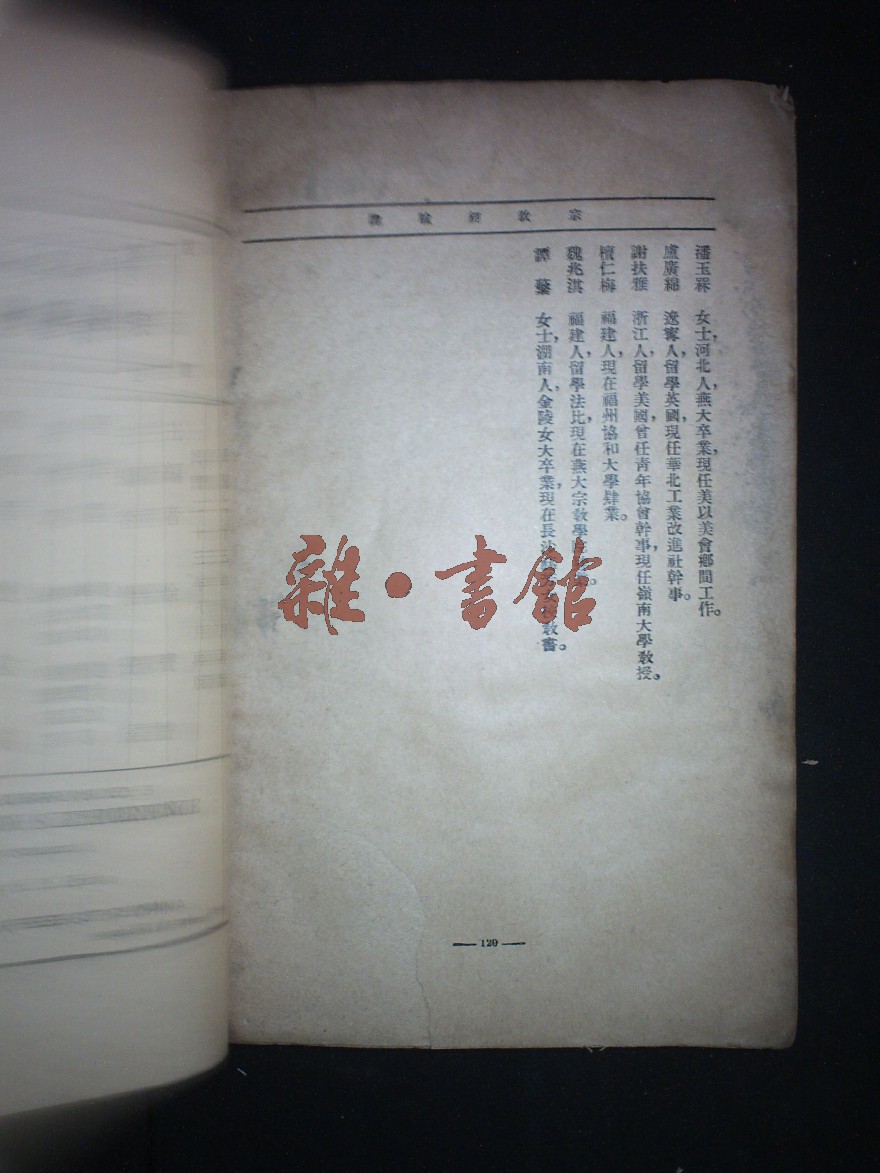 宗教經驗譚
潘玉槑 女士,河北人,燕大卒業,現任美以美會鄉間工作。
盧廣綿 遼寧人,留學英國,現任華北工業改進社幹事。
謝扶雅 浙江人,留學美國,曾任青年協會幹事,現任嶺南大學教授。
檀仁梅 福建人,現在福州協和大學肄業。
魏兆淇 福建人,留學法比,現在燕大宗教學院
譚 女士,湖南人,金陵女大卒業,現在長沙 教書。
雜·書館
— 120 —